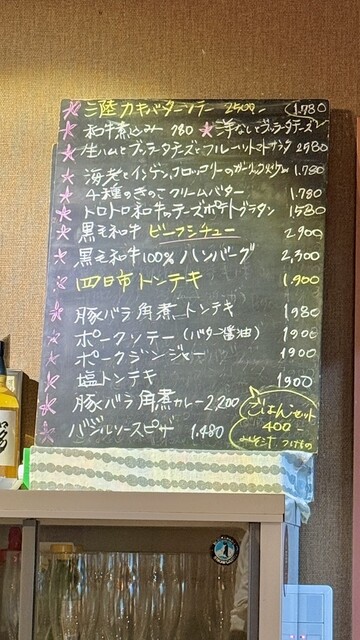 三陸カキバターソテー 2500- 1.780
和牛煮込み 780 洋なしとブッラータチーズ
生ハムとブッラータチーズとフルーツトマトサラダ 2580
海老とインゲン、ブロッコリーのガーリック炒め 1.780
4種のきのこクリームバター 1.780
トロトロ和牛のチーズポテトグラタン 1580
黒毛和牛 ビーフシチュー 2900
黒毛和牛100%ハンバーグ 2,300
四日市トンテキ 1.900
豚バラ角煮トンテキ 1980
ポークソテー (バター醤油) 1900
ポークジンジャー 1900
塩トンテキ 1900
豚バラ角煮カレー 2,200
バジルソースピザ 1.480
ごはんセット
400-
みそ汁 つけもの